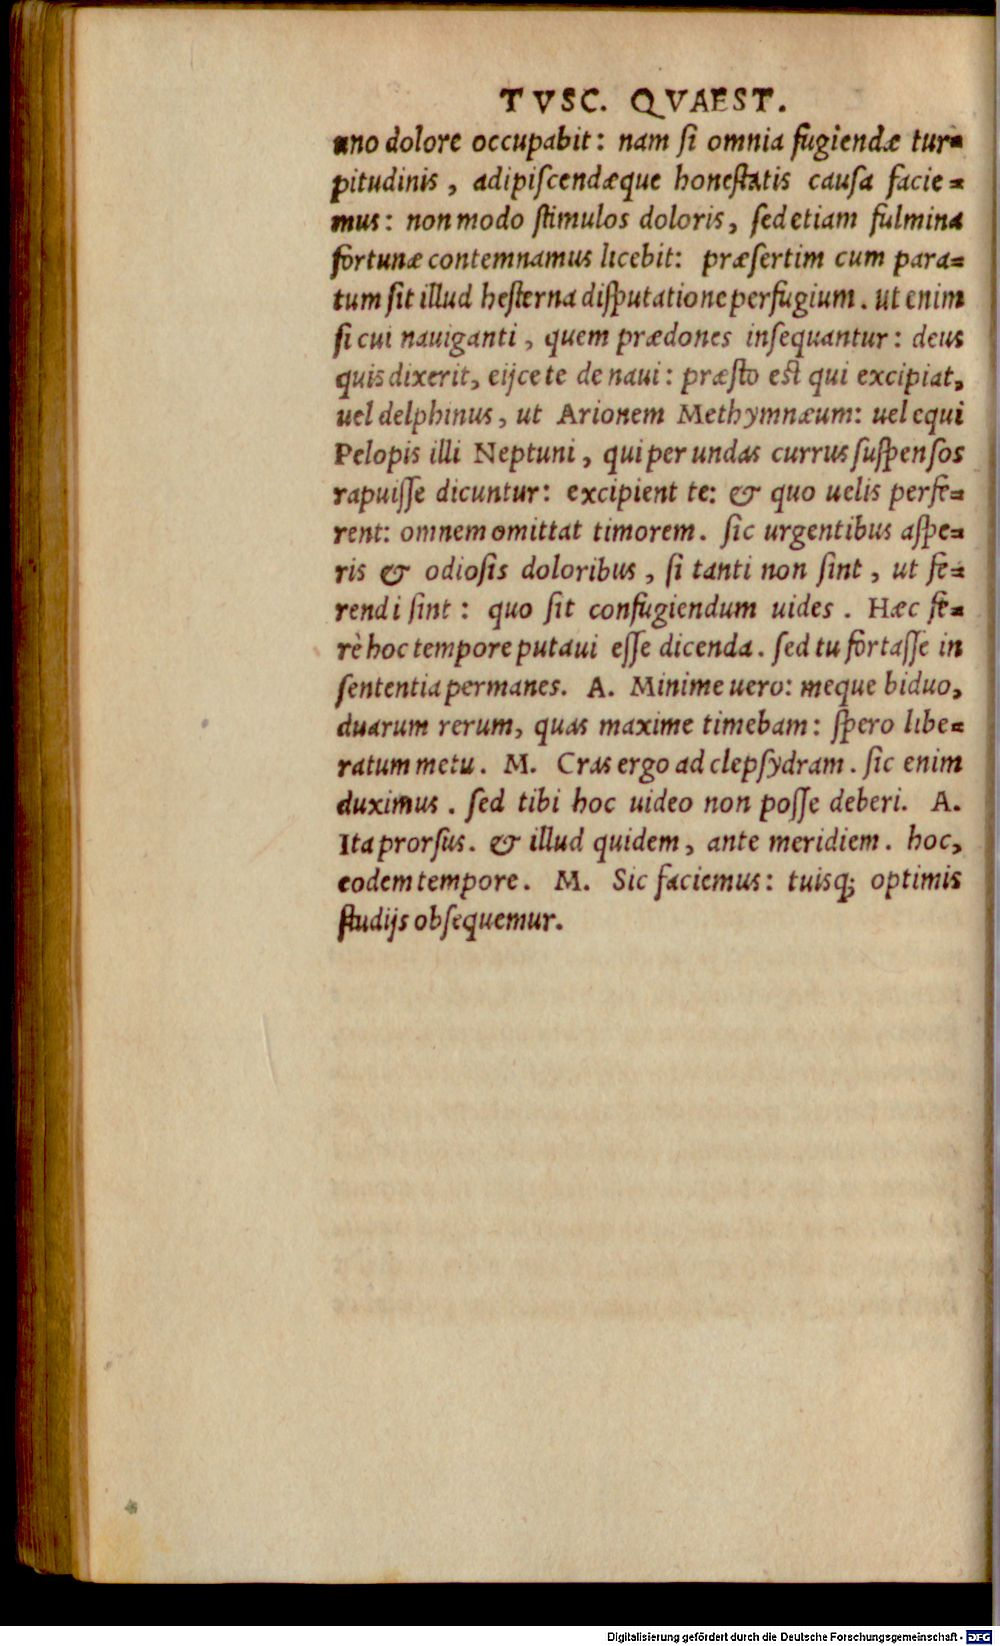 TVSC. QVAEST.
uno dolore occupabit: nam ſi omnia fugiendæ tur-
pitudinis, adipiſcendæque honeſtatis cauſa facie-
mus: non modo ſtimulos doloris, ſed etiam fulmina
fortunæ contemnamus licebit: præſertim cum para-
tum ſit illud heſterna diſputatione perfugium. ut enim
ſi cui nauiganti, quem prædones inſequantur: deus
quis dixerit, eijce te de naui: præſto eſt qui excipiat,
uel delphinus, ut Arionem Methymnæum: uel equi
Pelopis illi Neptuni, qui per undas currus ſuſpenſos
rapuiſſe dicuntur: excipient te: & quo uelis perfe-
rent: omnem omittat timorem. ſic urgentibus aſpe-
ris & odioſis doloribus, ſi tanti non ſint, ut fe-
rendi ſint: quo ſit confugiendum uides. Hæc fe-
rè hoc tempore putaui eſſe dicenda. ſed tu fortaſſe in
ſententia permanes. A. Minime uero: meque biduo,
duarum rerum, quas maxime timebam: ſpero libe-
ratum metu. M. Cras ergo ad clepſydram. ſic enim
duximus. ſed tibi hoc uideo non poſſe deberi. A.
Ita prorſus. & illud quidem, ante meridiem. hoc,
eodem tempore. M. Sic faciemus: tuisq; optimis
ſtudijs obſequemur.
Digitalisierung gefördert durch die Deutsche Forschungsgemeinschaft - DFG